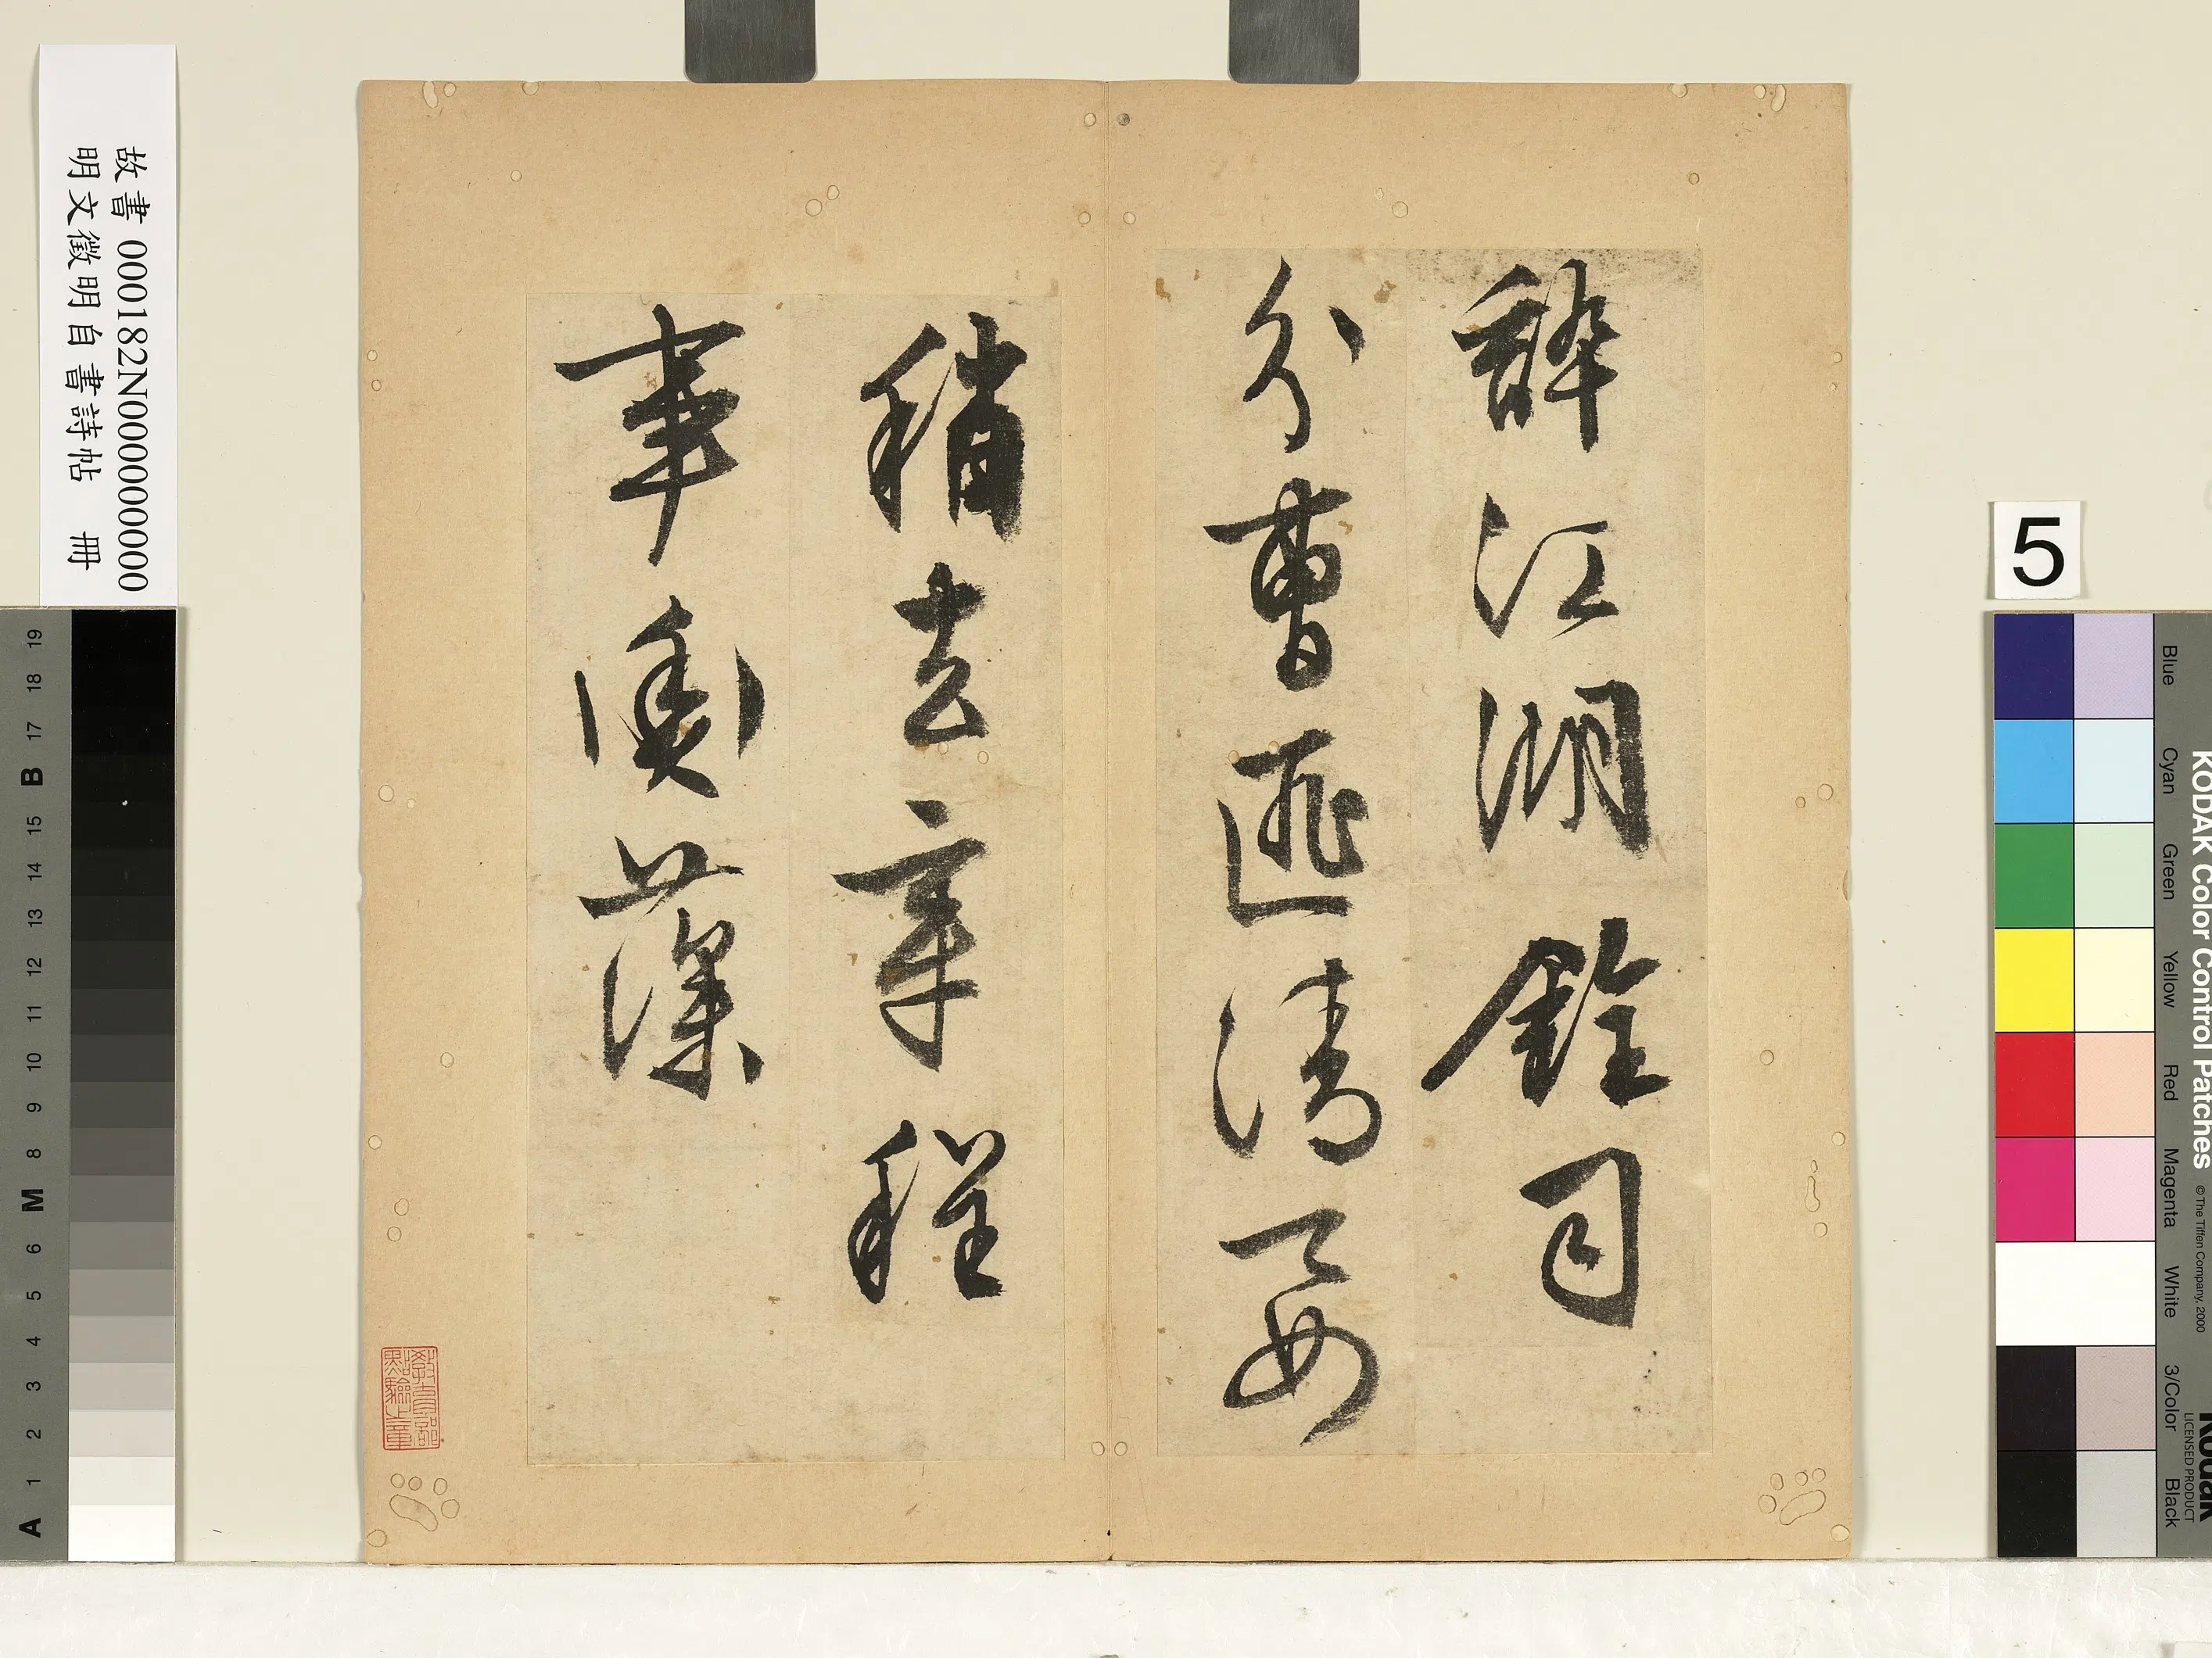 故書 000182N000000000
明文徵明自書詩帖 冊
辭江湖銓司
分曹匪清要
稍去章程
事奧藻
教育部點驗之章
5
KODAK Color Control Patches
© The Tiffen Company, 2000
Kodak
LICENSED PRODUCT
Blue
Cyan
Green
Yellow
Red
Magenta
White
3/Color
Black
A 1 2 3 4 5 6 M 8 9 10 11 12 13 14 15 B 17 18 19